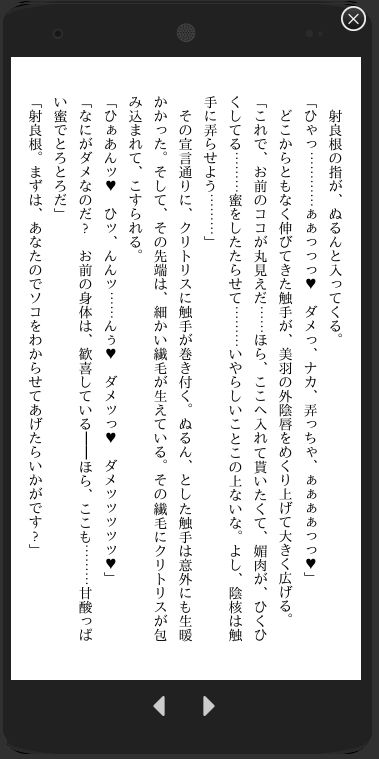 射良根の指が、ぬるんと入ってくる。
「ひゃっ…………ぁぁっっっ♥　ダメっ、ナカ、弄っちゃ、ぁぁぁぁっっ♥」
　どこからともなく伸びてきた触手が、美羽の外陰唇をめくり上げて大きく広げる。
「これで、お前のココが丸見えだ……ほら、ここへ入れて貰いたくて、媚肉が、ひくひ
くしてる………蜜をしたたらせて…………いやらしいことこの上ないな。よし、陰核は触
手に弄らせよう………」
　その宣言通りに、クリトリスに触手が巻き付く。ぬるん、とした触手は意外にも生暖
かかった。そして、その先端は、細かい繊毛が生えている。その繊毛にクリトリスが包
み込まれて、こすられる。
「ひぁあんッ♥　ひッ、んんッ……んぅ♥　ダメッっ♥　ダメッッッッッ♥」
「なにがダメなのだ？　お前の身体は、歓喜している――ほら、ここも………甘酸っぱ
い蜜でとろとろだ」
「射良根。まずは、あなたのでソコをわからせてあげたらいかがです？」